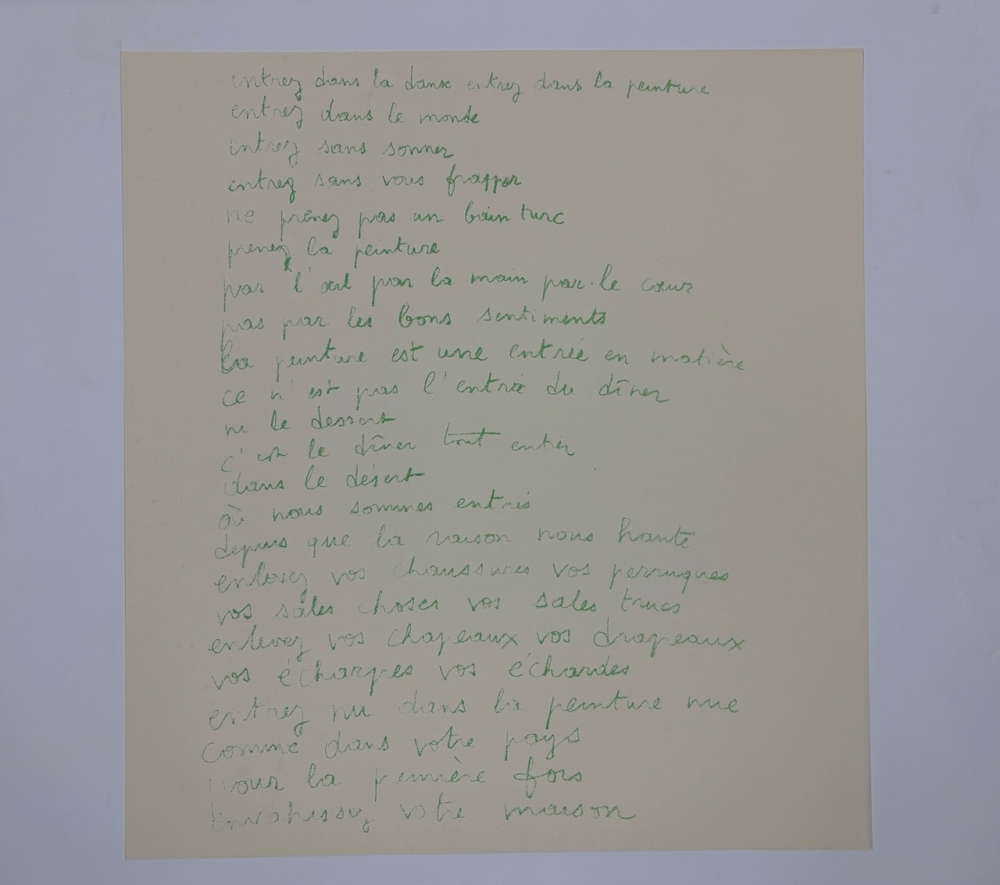 entrez dans la danse entrez dans la peinture
entrez dans le monde
entrez sans sonner
entrez sans vous frapper
ne prenez pas un bain turc
prenez la peinture
par l'œil par la main par le cœur
pas par les bons sentiments
la peinture est une entrée en matière
ce n'est pas l'entrée du dîner
ni le dessert
c'est le dîner tout entier
dans le désert
où nous sommes entrés
depuis que la raison nous hante
enlevez vos chaussures vos perruques
vos sales choses vos sales trucs
enlevez vos chapeaux vos drapeaux
vos écharpes vos échardes
entrez nu dans la peinture nue
comme dans votre pays
pour la première fois
envahissez votre maison